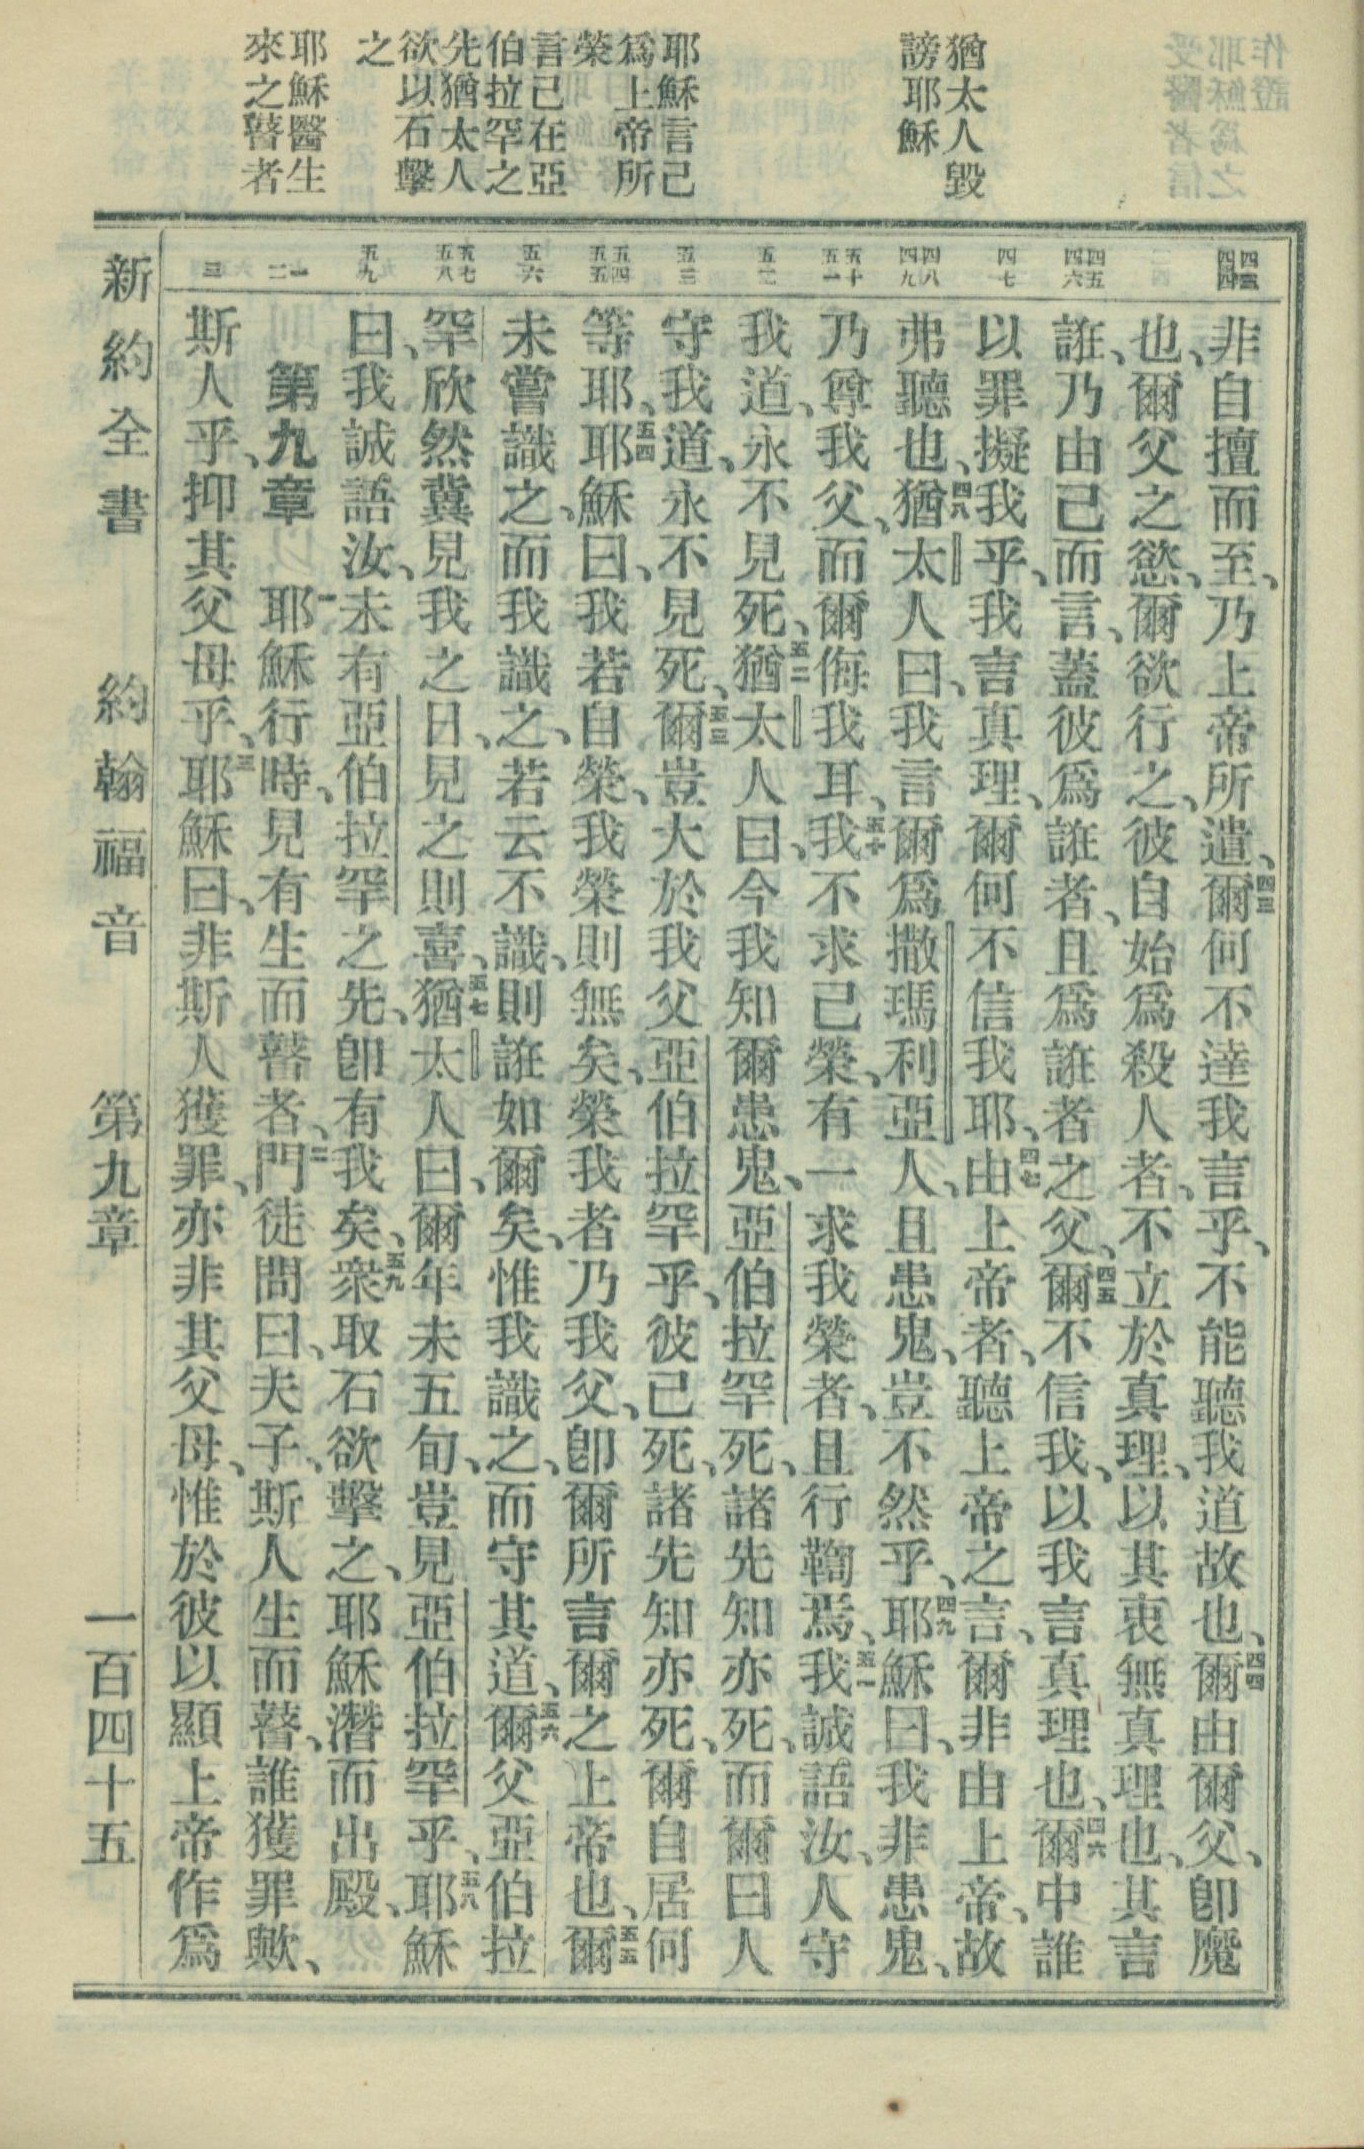 猶太人毀
謗耶穌
耶穌言己
爲上帝所
榮
言己在亞
伯拉罕之
先猶太人
欲以石擊
之
耶穌醫生
來之瞽者
四三 四四
四五 四六
四七
四八 四九
五十 五一
五二
五三
五四 五五
五六
五七 五八
五九
一 二
三
非自擅而至、乃上帝所遣、四三爾何不達我言乎、不能聽我道故也、四四爾由爾父、卽魔
也、爾父之慾、爾欲行之、彼自始爲殺人者、不立於真理、以其衷無真理也、其言
誑、乃由己而言、蓋彼爲誑者、且爲誑者之父、四五爾不信我、以我言真理也、四六爾中誰
以罪擬我乎、我言真理、爾何不信我耶、四七由上帝者、聽上帝之言、爾非由上帝、故
弗聽也、四八猶太人曰、我言爾爲撒瑪利亞人、且患鬼、豈不然乎、四九耶穌曰、我非患鬼、
乃尊我父、而爾侮我耳、五十我不求己榮、有一求我榮者、且行鞫焉、五一我誠語汝、人守
我道、永不見死、五二猶太人曰、今我知爾患鬼、亞伯拉罕死、諸先知亦死、而爾曰人
守我道、永不見死、五三爾豈大於我父亞伯拉罕乎、彼已死、諸先知亦死、爾自居何
等耶、五四耶穌曰、我若自榮、我榮則無矣、榮我者乃我父、卽爾所言爾之上帝也、五五爾
未嘗識之、而我識之、若云不識、則誑如爾矣、惟我識之、而守其道、五六爾父亞伯拉
罕欣然冀見我之日、見之則喜、五七猶太人曰、爾年未五旬、豈見亞伯拉罕乎、五八耶穌
曰、我誠語汝、未有亞伯拉罕之先、卽有我矣、五九衆取石欲擊之、耶穌潛而出殿、
第九章 一耶穌行時、見有生而瞽者、二門徒問曰、夫子、斯人生而瞽、誰獲罪歟、
斯人乎、抑其父母乎、三耶穌曰、非斯人獲罪、亦非其父母、惟於彼以顯上帝作爲
新約全書 約翰福音 第九章 一百四十五